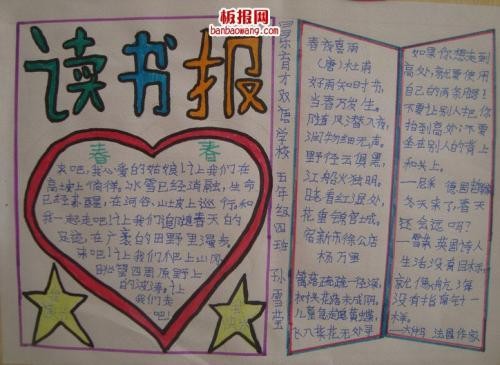 板报网
banbaowang.com
读书报
春 春
来吧,我心爱的姑娘!让我们在
高坡上徜徉。冰雪已经消融,生命
已经苏醒,在河谷、山坡上巡行,和
我一起走吧!让我们追随春天的
足迹,在广袤的田野里漫步。
来吧!让我们爬上山冈
眺望四周原野上
的波涛。让
我们走
吧!
双语学校
五年级四班
孙雪莹
春夜喜雨
(唐)杜甫
好雨知时节,
当春乃发生。
随风潜入夜,
润物细无声。
野径云俱黑,
江船火独明。
晓看红湿处,
花重锦官城。
宿新市徐公店
杨万里
篱落疏疏一径深,
树头花落未成阴。
儿童急走追黄蝶,
飞入菜花无处寻。
如果你想走到
高处,就要使用
自己的两条腿!
不要让别人把你
抬到高处;不要
坐在别人的背上
和头上。
冬天来了,春天
还会远吗?
——雪莱 英国诗人
生活没有目标,
就像航海
没有指南针一
样。
——大仲马 法国作家